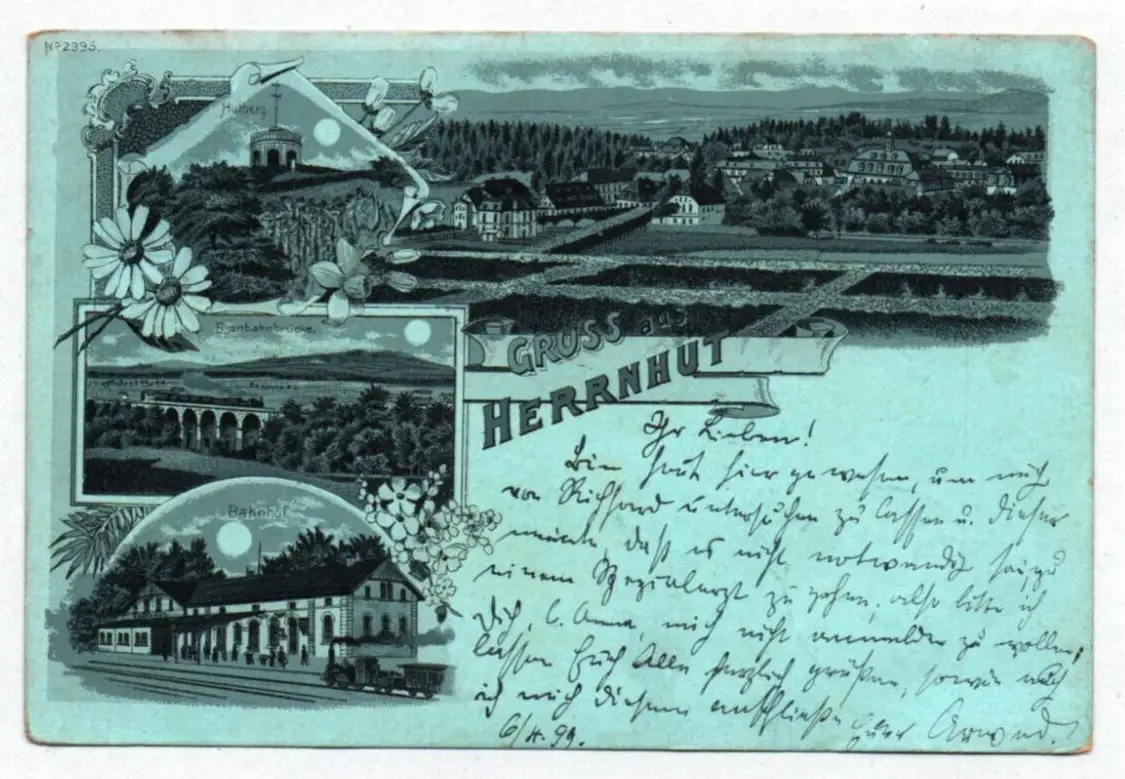 Nº 2395.
Hutberg
Eisenbahnbrücke.
Bahnhof
GRUSS aus
HERRNHUT
Ihr Lieben!
Bin heut hier gewesen, um mich
von Richard untersuchen zu lassen u. dieser
meinte, daß es nicht notwendig sei, zu
einem Spezialarzt zu gehen, also bitte ich
Dich, l. Anna, mich nicht anmelden zu wollen,
lassen Euch Alle herzlich grüßen, sowie auch
ich mich diesem anschließe Euer Arwed.
6/4. 99.